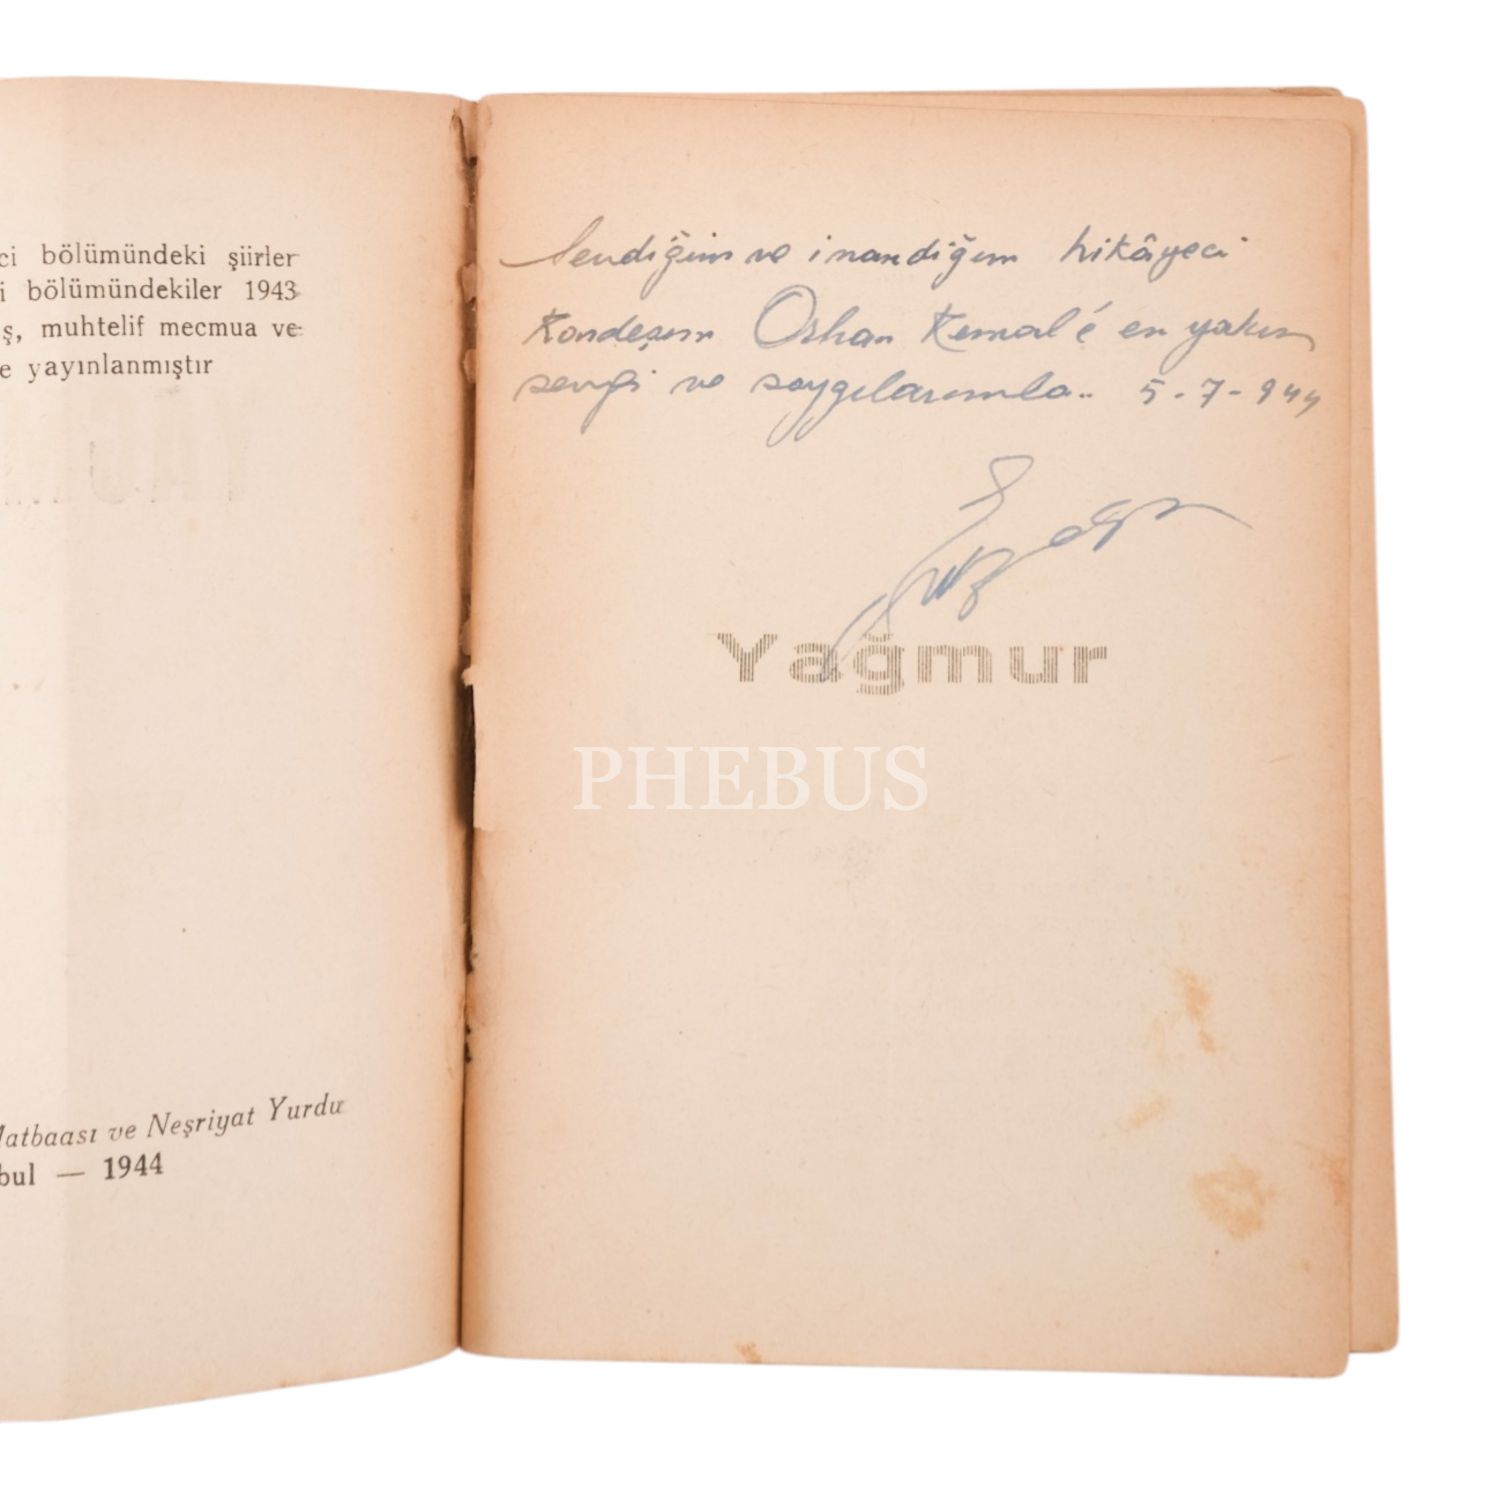 ci bölümündeki şiirler
i bölümündekiler 1943
ş, muhtelif mecmua ve
e yayınlanmıştır
Matbaası ve Neşriyat Yurdu
bul — 1944
Sevdiğim ve inandığım hikâyeci
Kardeşim Orhan Kemal'e en yakın
sevgi ve saygılarımla.. 5-7-944
Yağmur
PHEBUS